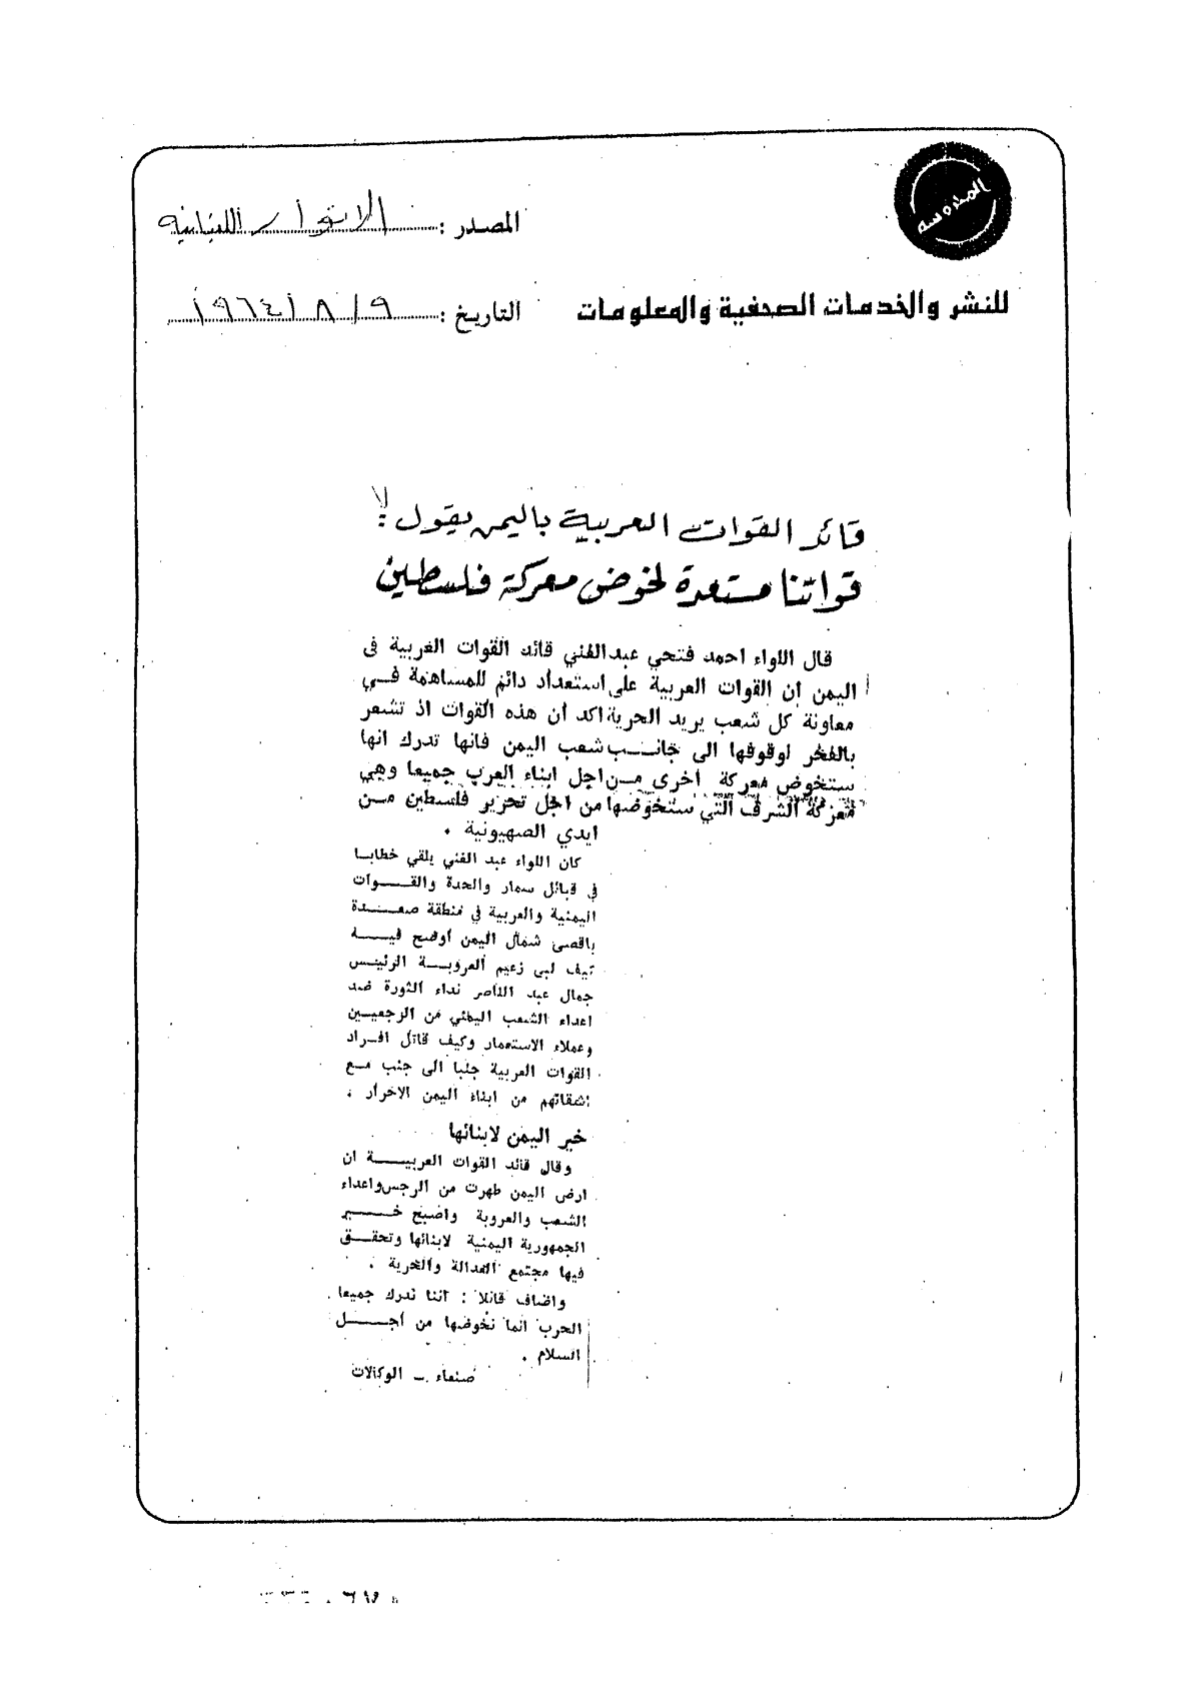 المصدر : الانوار اللبنانية
للنشر والخدمات الصحفية والمعلومات
التاريخ : ٩ / ٨ / ١٩٦٤
قائد القوات العربية باليمن يقول :
قواتنا مستعدة لخوض معركة فلسطين
قال اللواء احمد فتحي عبدالغني قائد القوات العربية في
اليمن ان القوات العربية على استعداد دائم للمساهمة فــي
معاونة كل شعب يريد الحرية اكد ان هذه القوات اذ تشعر
بالفخر اوقوفها الى جانــب شعب اليمن فانها تدرك انها
ستخوض معركة اخرى مــن اجل ابناء العرب جميعا وهي
معركة الشرف التي ستخوضها من اجل تحرير فلسطين مــن
ايدي الصهيونية .
كان اللواء عبد الغني يلقي خطابـا
في قبائل سمار والحدة والقــوات
اليمنية والعربية في منطقة صعــدة
باقصى شمال اليمن اوضح فيــه
كيف لبى زعيم العروبــة الرئيس
جمال عبد الناصر نداء الثورة ضد
اعداء الشعب اليمني من الرجعيين
وعملاء الاستعمار وكيف قاتل افــراد
القوات العربية جنبا الى جنب مــع
اشقائهم من ابناء اليمن الاحرار .
خير اليمن لابنائها
وقال قائد القوات العربيــة ان
ارض اليمن طهرت من الرجس واعداء
الشعب والعروبة واصبح خــير
الجمهورية اليمنية لابنائها وتحقــق
فيها مجتمع العدالة والحرية .
واضاف قائلا : اننا ندرك جميعا
الحرب انما نخوضها من اجــل
السلام .
صنعاء ـ الوكالات